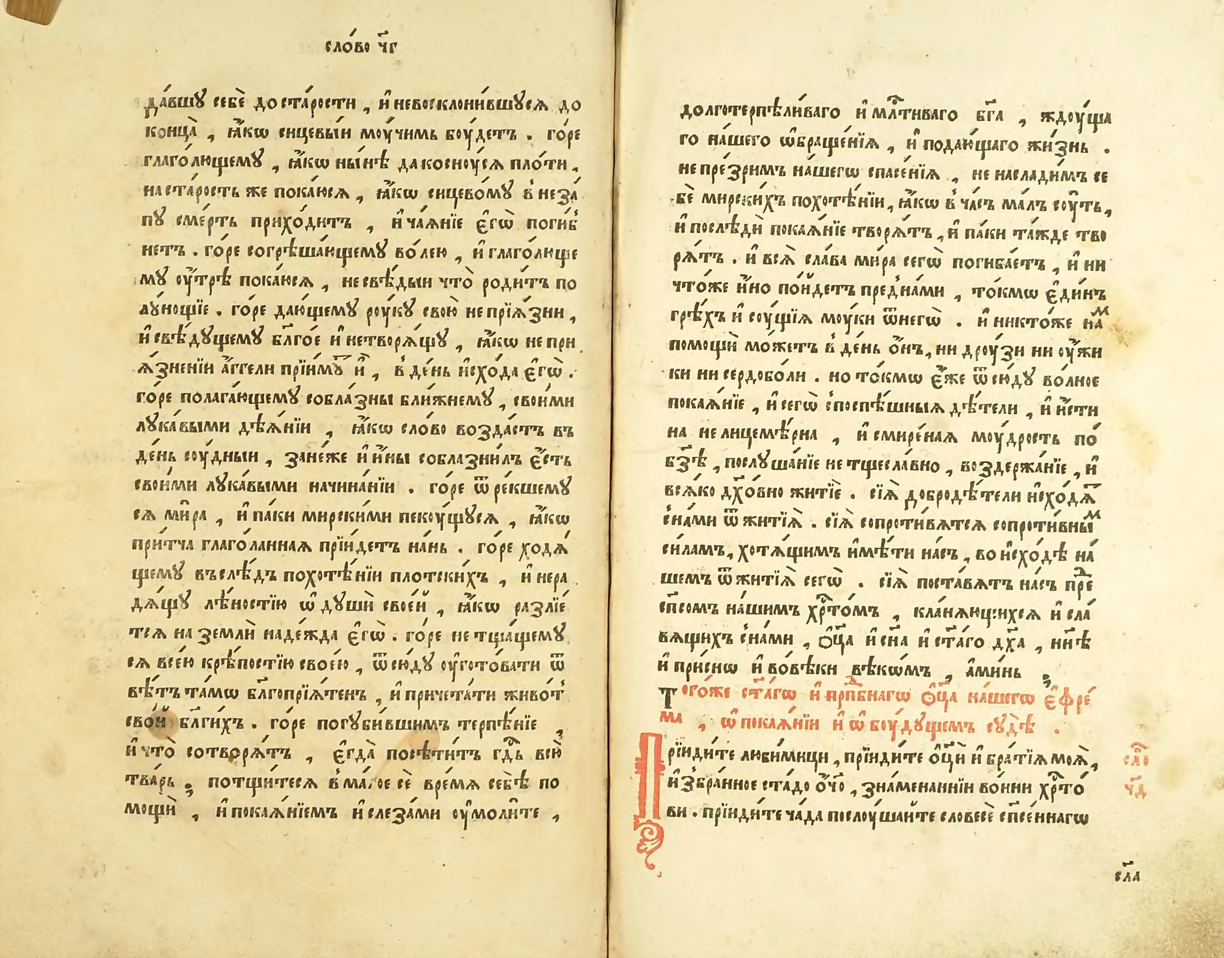 сло́во ч҃г
да́вшꙋ себѐ до ста́рости , и҆ невосклони́вшꙋсѧ до
конца̀ , ꙗ҆́кѡ сицевы́и моучимь боу́детъ . го́ре
глаго́лющемꙋ , ꙗ҆́кѡ ны́нѣ да коснꙋ́сѧ пло́ти ,
на ста́рость же пока́юсѧ , ꙗ҆́кѡ сицево́мꙋ в̾ неза́
пꙋ сме́рть прихо́дитъ , и҆ ча́ѧнїе є҆гѡ̀ поги́б
нетъ . го́ре согрѣша́ющемꙋ во́лею , и҆ глаго́люще
мꙋ оу҆́трѣ пока́юсѧ , несвѣ́дыи что̀ роди́тъ по
лꙋ́нощїе . го́ре даю́щемꙋ роу́кꙋ свою̀ непрїѧ́зни ,
и҆ свѣ́дꙋщемꙋ бл҃го́е и҆ нетворѧ́щꙋ , ꙗ҆́кѡ непри
ѧ́зненїи а҆́ггели прїи́мꙋт и҆̀ , в̾ де́нь и҆схо́да є҆гѡ̀ .
го́ре полага́ющемꙋ собла́зны бли́жнемꙋ , свои́ми
лꙋка́выми дѣѧ́нїи , ꙗ҆́кѡ сло́во возда́стъ въ
де́нь соу́дныи , зане́же и҆ и҆́ны соблазни́лъ є҆́сть
свои́ми лꙋка́выми начина́нїи . го́ре ѿре́кшемꙋ
сѧ ми́ра , и҆ па́ки мирски́ми пекоу́щꙋсѧ , ꙗ҆́кѡ
при́тча глаго́ланнаѧ прїи́детъ на́нь . го́ре ходѧ́
щемꙋ въ слѣ́дъ похотѣ́нїи пло́тскихъ , и҆ нера
дѧ́щꙋ лѣ́ностїю ѡ҆ дꙋшѝ свое́й , ꙗ҆́кѡ разлїе́
тсѧ на землѝ наде́жда є҆гѡ̀ . го́ре не тща́щемꙋ
сѧ все́ю крѣ́постїю свое́ю , ѿсю́дꙋ оу҆гото́вати ѿ
вѣ́тъ та́мѡ бл҃гопрїѧ́тенъ , и҆ причета́ти живо́т
сво́й бл҃ги́хъ . го́ре погꙋби́вшимъ терпѣ́нїе ,
и҆ что̀ сотворѧ́тъ , є҆гда̀ посѣти́тъ гд҃ь всю̀
тва́рь , потщи́тесѧ в̾ ма́лое сѐ вре́мѧ себѣ̀ по
мощѝ , и҆ покаѧ́нїемъ и҆ слеза́ми оу҆моли́те ,
долготерпѣли́ваго и҆ мл҃тиваго бг҃а , ждꙋ́ща
го на́шего ѡ҆браще́нїѧ , и҆ подаю́щаго жи́знь .
не пре́зримъ на́шегѡ спасе́нїѧ , не насла́димъ се
бѐ мирски́хъ похотѣ́нїи, ꙗ҆́кѡ в̾ ча́съ ма́лъ соу́ть,
и҆ послѣдѝ покаѧ́нїе творѧ́тъ , и҆ па́ки та́жде тво
рѧ́тъ . и҆ всѧ̀ сла́ва ми́ра сегѡ̀ погиба́етъ , и҆ ни
что́же и҆́но по́йдетъ пред̾на́ми , то́кмѡ є҆ди́нъ
грѣ́хъ и҆ соу́щїѧ моу́ки ѿнегѡ̀ . и҆ никто́же на́м
помощѝ мо́жетъ в̾ де́нь ѻ҆́нъ, ни дроу́зи ни оу҆́жи
ки ни сердобо́ли . но то́кмѡ є҆́же ѿсю́дꙋ во́лное
покаѧ́нїе , и҆ сегѡ̀ споспѣ́шныѧ дѣ́тели , и҆ и҆́сти
на нелицемѣ́рна , и҆ смире́наѧ моу́дрость по
бз҃ѣ , послꙋша́нїе не тщесла́вно , воздержа́нїе , и҆
всѧ́ко дх҃о́вно житїѐ . сїѧ̀ доброд́ѣтели и҆схо́дѧт
с̾на́ми ѿ житїѧ̀ . сїѧ̀ сопроти́вѧтсѧ сопроти́вным
си́ламъ, хотѧ́щимъ и҆мѣ́ти на́съ , во и҆схо́дѣ на́
шемъ ѿ житїѧ̀ сегѡ̀ . сїѧ̀ поста́вѧтъ на́съ пре
сп҃сомъ на́шимъ хр҃то́мъ , кла́нѧющихсѧ и҆ сла́
вѧщихъ с̾на́ми , ѻ҆ц҃а и҆ сн҃а и҆ ст҃а́го дх҃а , нн҃ѣ
и҆ при́снѡ и҆ во́вѣки вѣкѡ́мъ , а҆ми́нь .
Того́же ст҃а́гѡ и҆ прпⷣбнагѡ ѻ҆ц҃а на́шегѡ є҆фре́
ма , ѡ҆ покаѧ́нїи и҆ ѡ҆ боу́дꙋщемъ сꙋдѣ̀ .
Прїиди́те люби́мици , прїиди́те ѻ҆ц҃и и҆ бра́тїѧ моѧ̀ ,
и҆збра́нное ста́до ѻ҆́чо , зна́менаннїи во́ини хр҃то́
ви . прїиди́те ча́да послоу́шайте словесѐ сп҃се́ннагѡ
сло
ч҃д
сл҃а